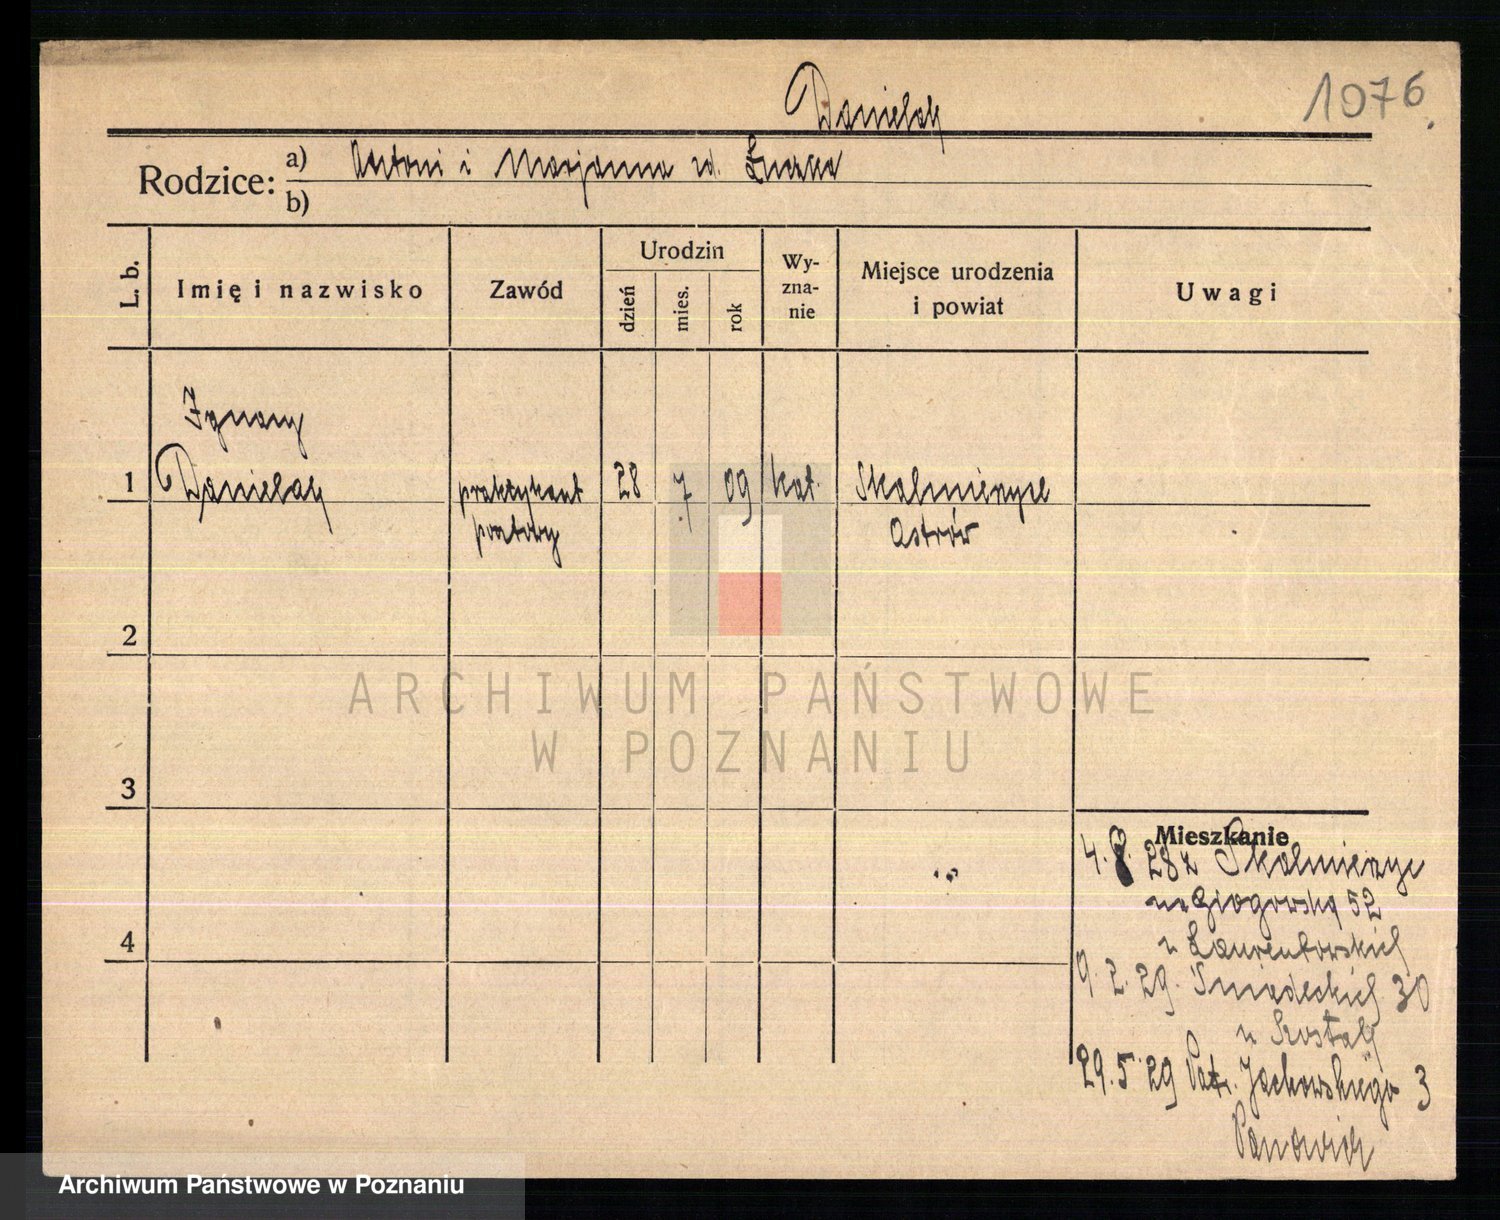 1076.
Danielak
Rodzice: a) Antoni i Marjanna zd.
b)
L. b.
Imię i nazwisko
Zawód
Urodzin
dzień
mies.
rok
Wy-
zna-
nie
Miejsce urodzenia
i powiat
Uwagi
Ignacy
1 Danielak praktykant 28 7 09 kat. Skalmierzyce
pocztowy Ostrów
2
3
4
Mieszkanie
4. 28 z Skalmierzyc
na Głogowską 52
u
9. 2. 29. Śniadeckich 30
u Szostak
29. 5 29 Patr. Jackowskiego 3
ARCHIWUM PAŃSTWOWE
W POZNANIU
Archiwum Państwowe w Poznaniu